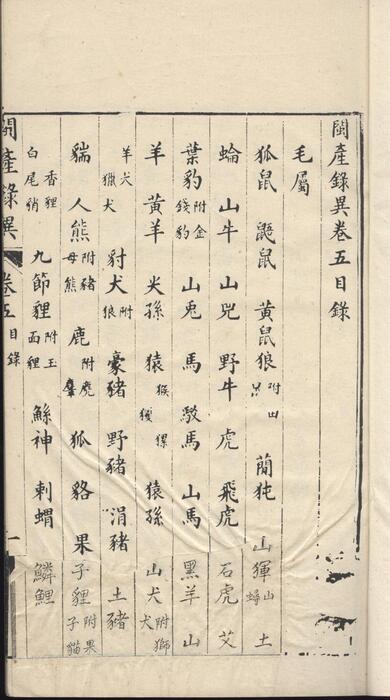 閩產錄異卷五目錄
毛屬
狐鼠 鼯鼠 黃鼠狼 附山 㒵 蕳㹠 山㺔 山䗪 土
蜦 山牛 山兕 野牛 虎 飛虎 石虎 艾
葉豹 附金錢豹 山兎 馬 駮馬 山馬 黑羊 山
羊 黃羊 火孫 猿 猴 猱 㺅 猿孫 山犬 附獅犬
羊犬 獵犬 豺犬 附狼 豪豬 野豬 涓豬 土豬
貒 人熊 附豬母熊 鹿 附麂 麞 狐 貉 果子貍 附果子貓
香貍 白尾𧳅 九節貍 附玉面貍 鯀神 刺蝟 鱗鯉
閩產錄異 卷五 目錄 一